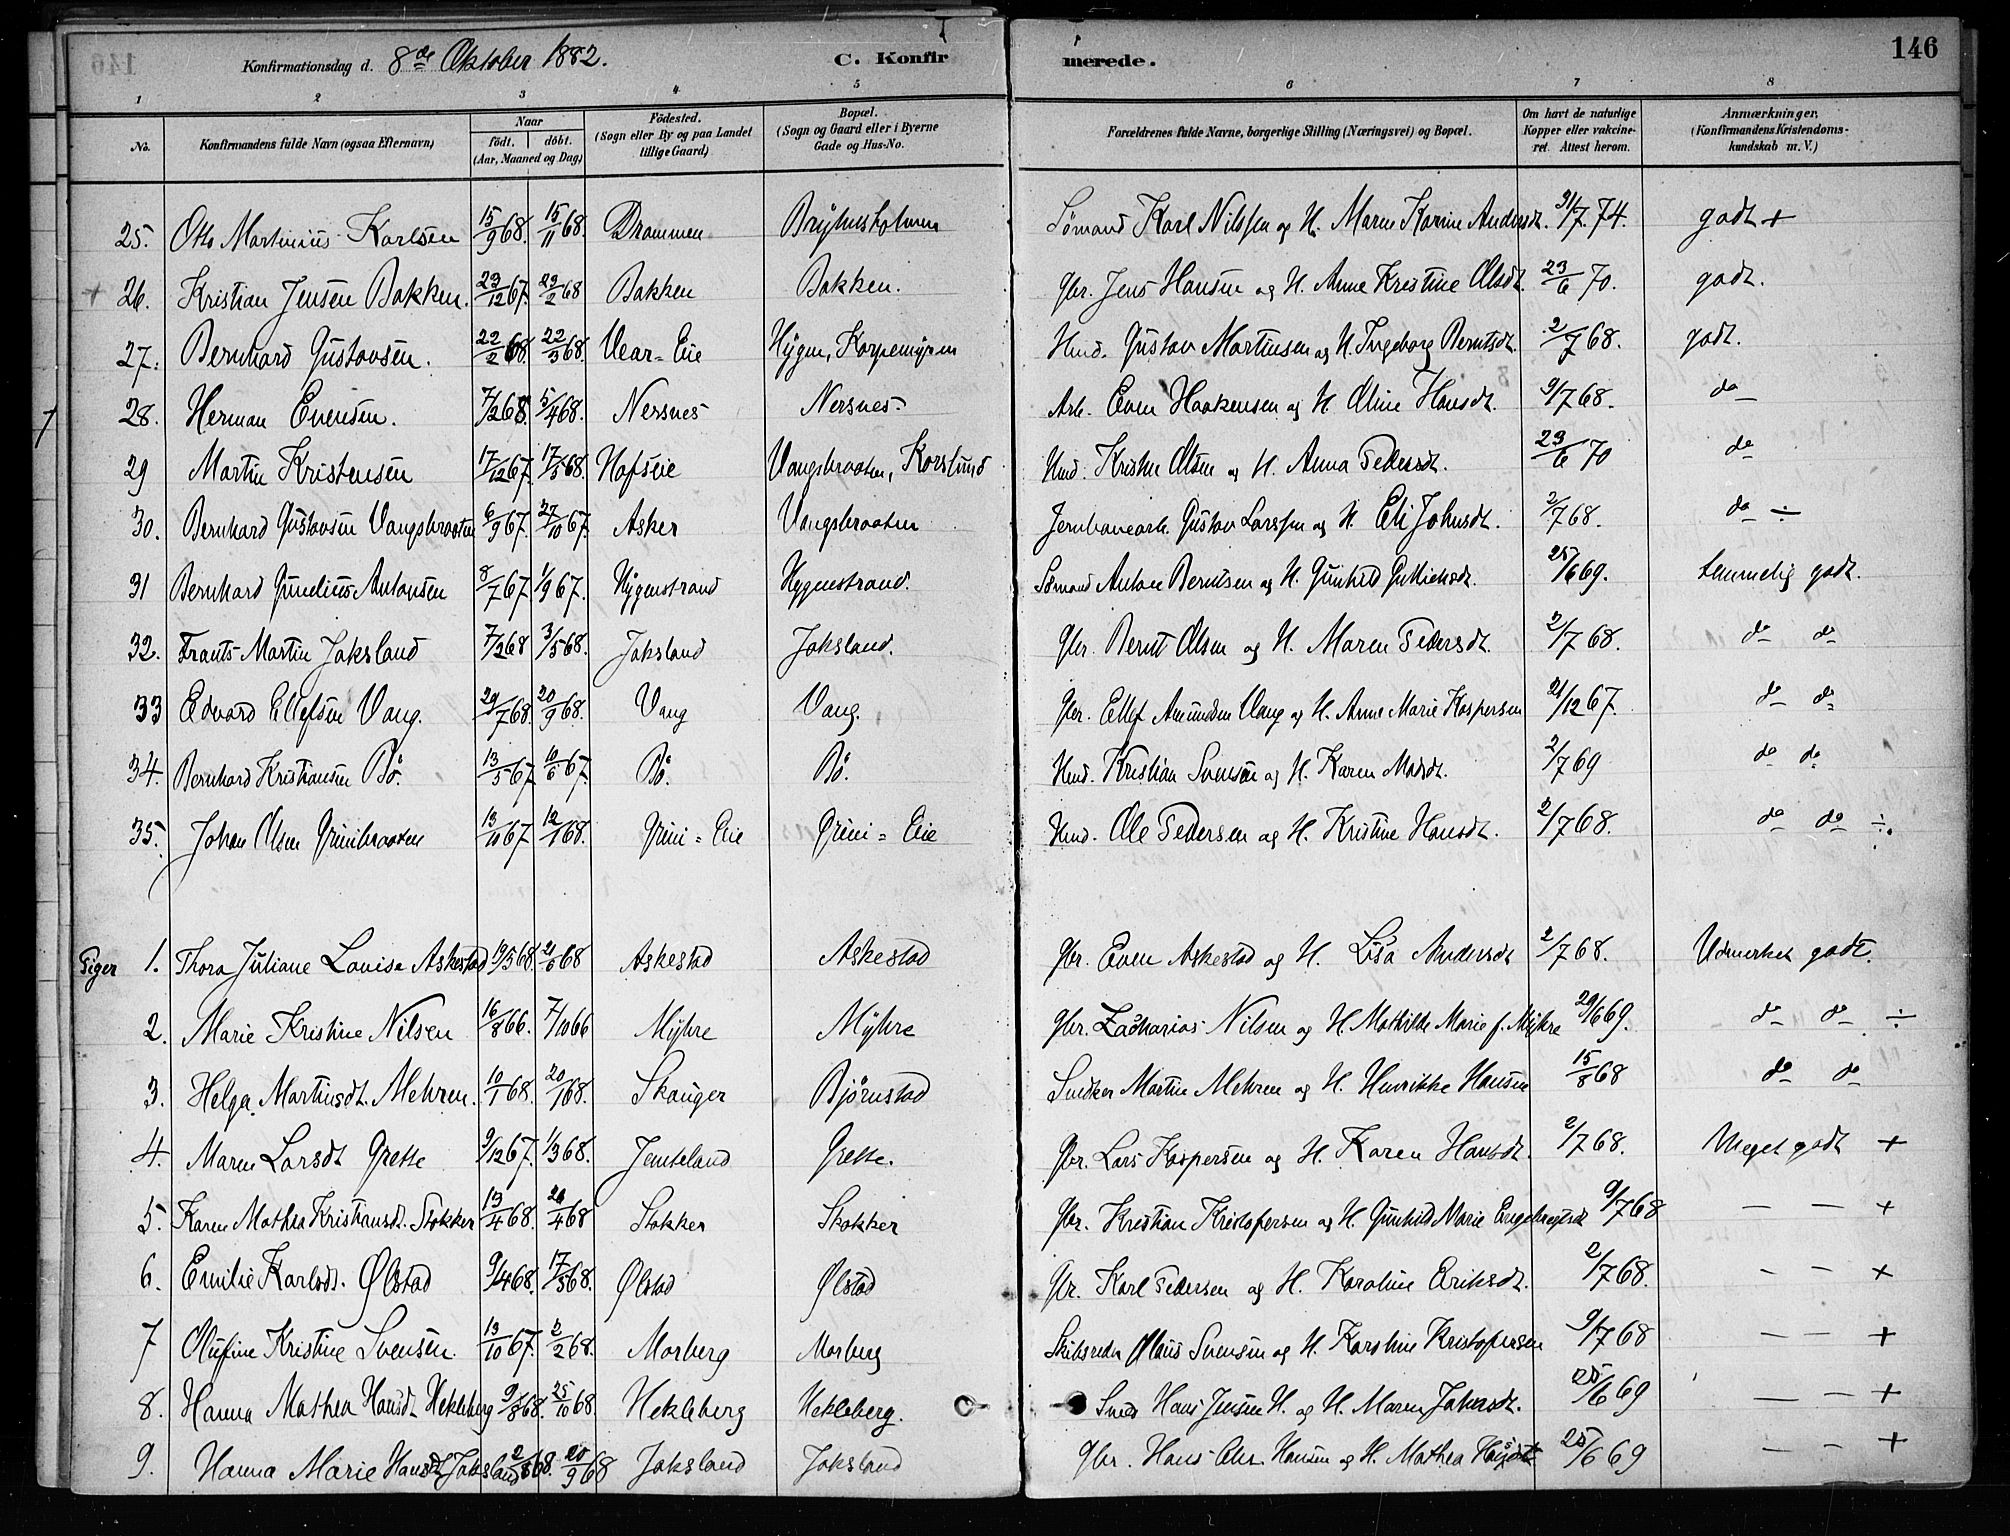 Konfirmationsdag d. 8de Oktober 1882. C. Konfirmerede. 146
1 2 3 4 5 6 7 8
No. Konfirmandens fulde Navn (ogsaa Efternavn) Naar født. døbt. (Aar, Maaned og Dag) Fødested. (Sogn eller By og paa Landet tillige Gaard) Bopæl. (Sogn og Gaard eller i Byerne Gade og Hus-No. Forældrenes fulde Navne, borgerlige Stilling (Næringsvei) og Bopæl. Om havt de naturlige Kopper eller vakcineret. Attest herom. Anmærkninger. (Konfirmandens Kristendomskundskab m. V.)
25. Otto Martinius Karlsen 15/9 68. 15/11 68. Drammen Sømand Karl Nilssen og H. Maren Karine Andersdt. 31/7 74. godt +
+ 26. Kristian Jensen Bakken. 23/12 67. 23/2 68 Bakken Bakken. Gbr. Jens Hansen og H. Anne Kristine Olsdt. 23/6 70. godt.
27. Bernhard Gustavsen. 22/2 68. 22/3 68. Vear-Eie Hygen, Korpemyren Hmd. Gustav Martinsen og H. Ingeborg Berntsdt. 2/7 68. godt.
28. Herman Evensen. 7/2 68. 5/4 68. Nersnes Nersnes. Arb. Even Haakensen og H. Oline Hansdt. 9/7 68. do
29 Martin Kristensen 17/12 67. 17/5 68. Hofseie Vangsbraaten, Korslund Hmd. Kristen Olsen og H. Anna Pedersdt. 23/6 70 do
30. Bernhard Gustavsen Vangsbraaten 6/9 67. 27/10 67. Asker Vangsbraaten Jernbanearb. Gustav Larssen og H. Eli Johnsdt. 2/7 68. do ÷
31 Bernhard Gundius Antonsen 8/7 67 1/9 67. Hygenstrand Hygenstrand. Sømand Anton Berntsen og H. Gunhild Gulliksdt. 25/6 69. temmelig godt.
32. Frants Martin Jaksland 7/2 68 3/5 68. Jaksland Jaksland. Gbr. Bernt Olsen og H. Maren Pedersdt. 2/7 68. do do
33 Edvard Ellefsen Vang. 29/7 68. 20/9 68. Vang Vang. Gbr. Ellef Amundsen Vang og H. Anne Marie Kaspersen 21/12 67. do do
34. Bernhard Kristiansen Bø. 13/5 67. 10/6 67. Bø. Bø. Hmd. Kristian Svensen og H. Karen Madsdt. 2/7 69 do do
35. Johan Olsen Grinibraaten 13/10 67 12/1 68. Grini-Eie Grini-Eie Hmd. Ole Pedersen og H. Kristine Hansdt. 2/7 68. do do ÷.
Piger 1. Thora Juliane Lovise Askestad 19/5 68. 21/6 68 Askestad Askestad Gbr. Even Askestad og H. Lisa Andersdt 2/7 68. Udmerket godt.
2. Marie Kristine Nilsen 16/8 66. 7/10 66 Myhre Myhre Gbr. Zacharias Nilsen og H. Mathilde Marie f. Myhre 29/6 69. do do ÷
3. Helga Martinsdt. Mehren. 10/1 68. 20/1 68. Skauger Bjørnstad Snedker Martin Mehren og H. Henrikke Hansen 15/8 68 do do
4. Maren Larsdt Grette 9/12 67. 1/3 68. Jenteland Grette. Gbr. Lars Kaspersen og H. Karen Hansdt. 2/7 68. Meget godt +
5. Karen Mathea Kristiansdt. Stokker 13/4 68. 26/4 68 Stokker Stokker Gbr. Kristian Kristofersen og H. Gunhild Marie Engebregtsdt 9/7 68 — — +
6. Emilie Karlsdt. Ølstad 9/4 68. 17/5 68. Ølstad Ølstad Gbr. Karl Pedersen og H. Karoline Eriksdt. 2/7 68. — — +
7 Olufine Kristine Svensen. 13/10 67. 2/2 68. Morberg Morberg Skibsreder Olaus Svensen og H. Karoline Kristofersen 9/7 68 — — +
8. Hanna Mathea Hansdt Hekleberg 9/8 68. 25/10 68. Hekleberg Hekleberg. Sned. Hans Jensen H. og H. Maren Johnsdt. 25/6 69 — — +
9. Hanna Marie Hansdt. Jaksland 2/8 68. 20/9 68 Jaksland Jaksland Gbr. Hans Chr. Hansen og H. Mathea 25/6 69 — — +